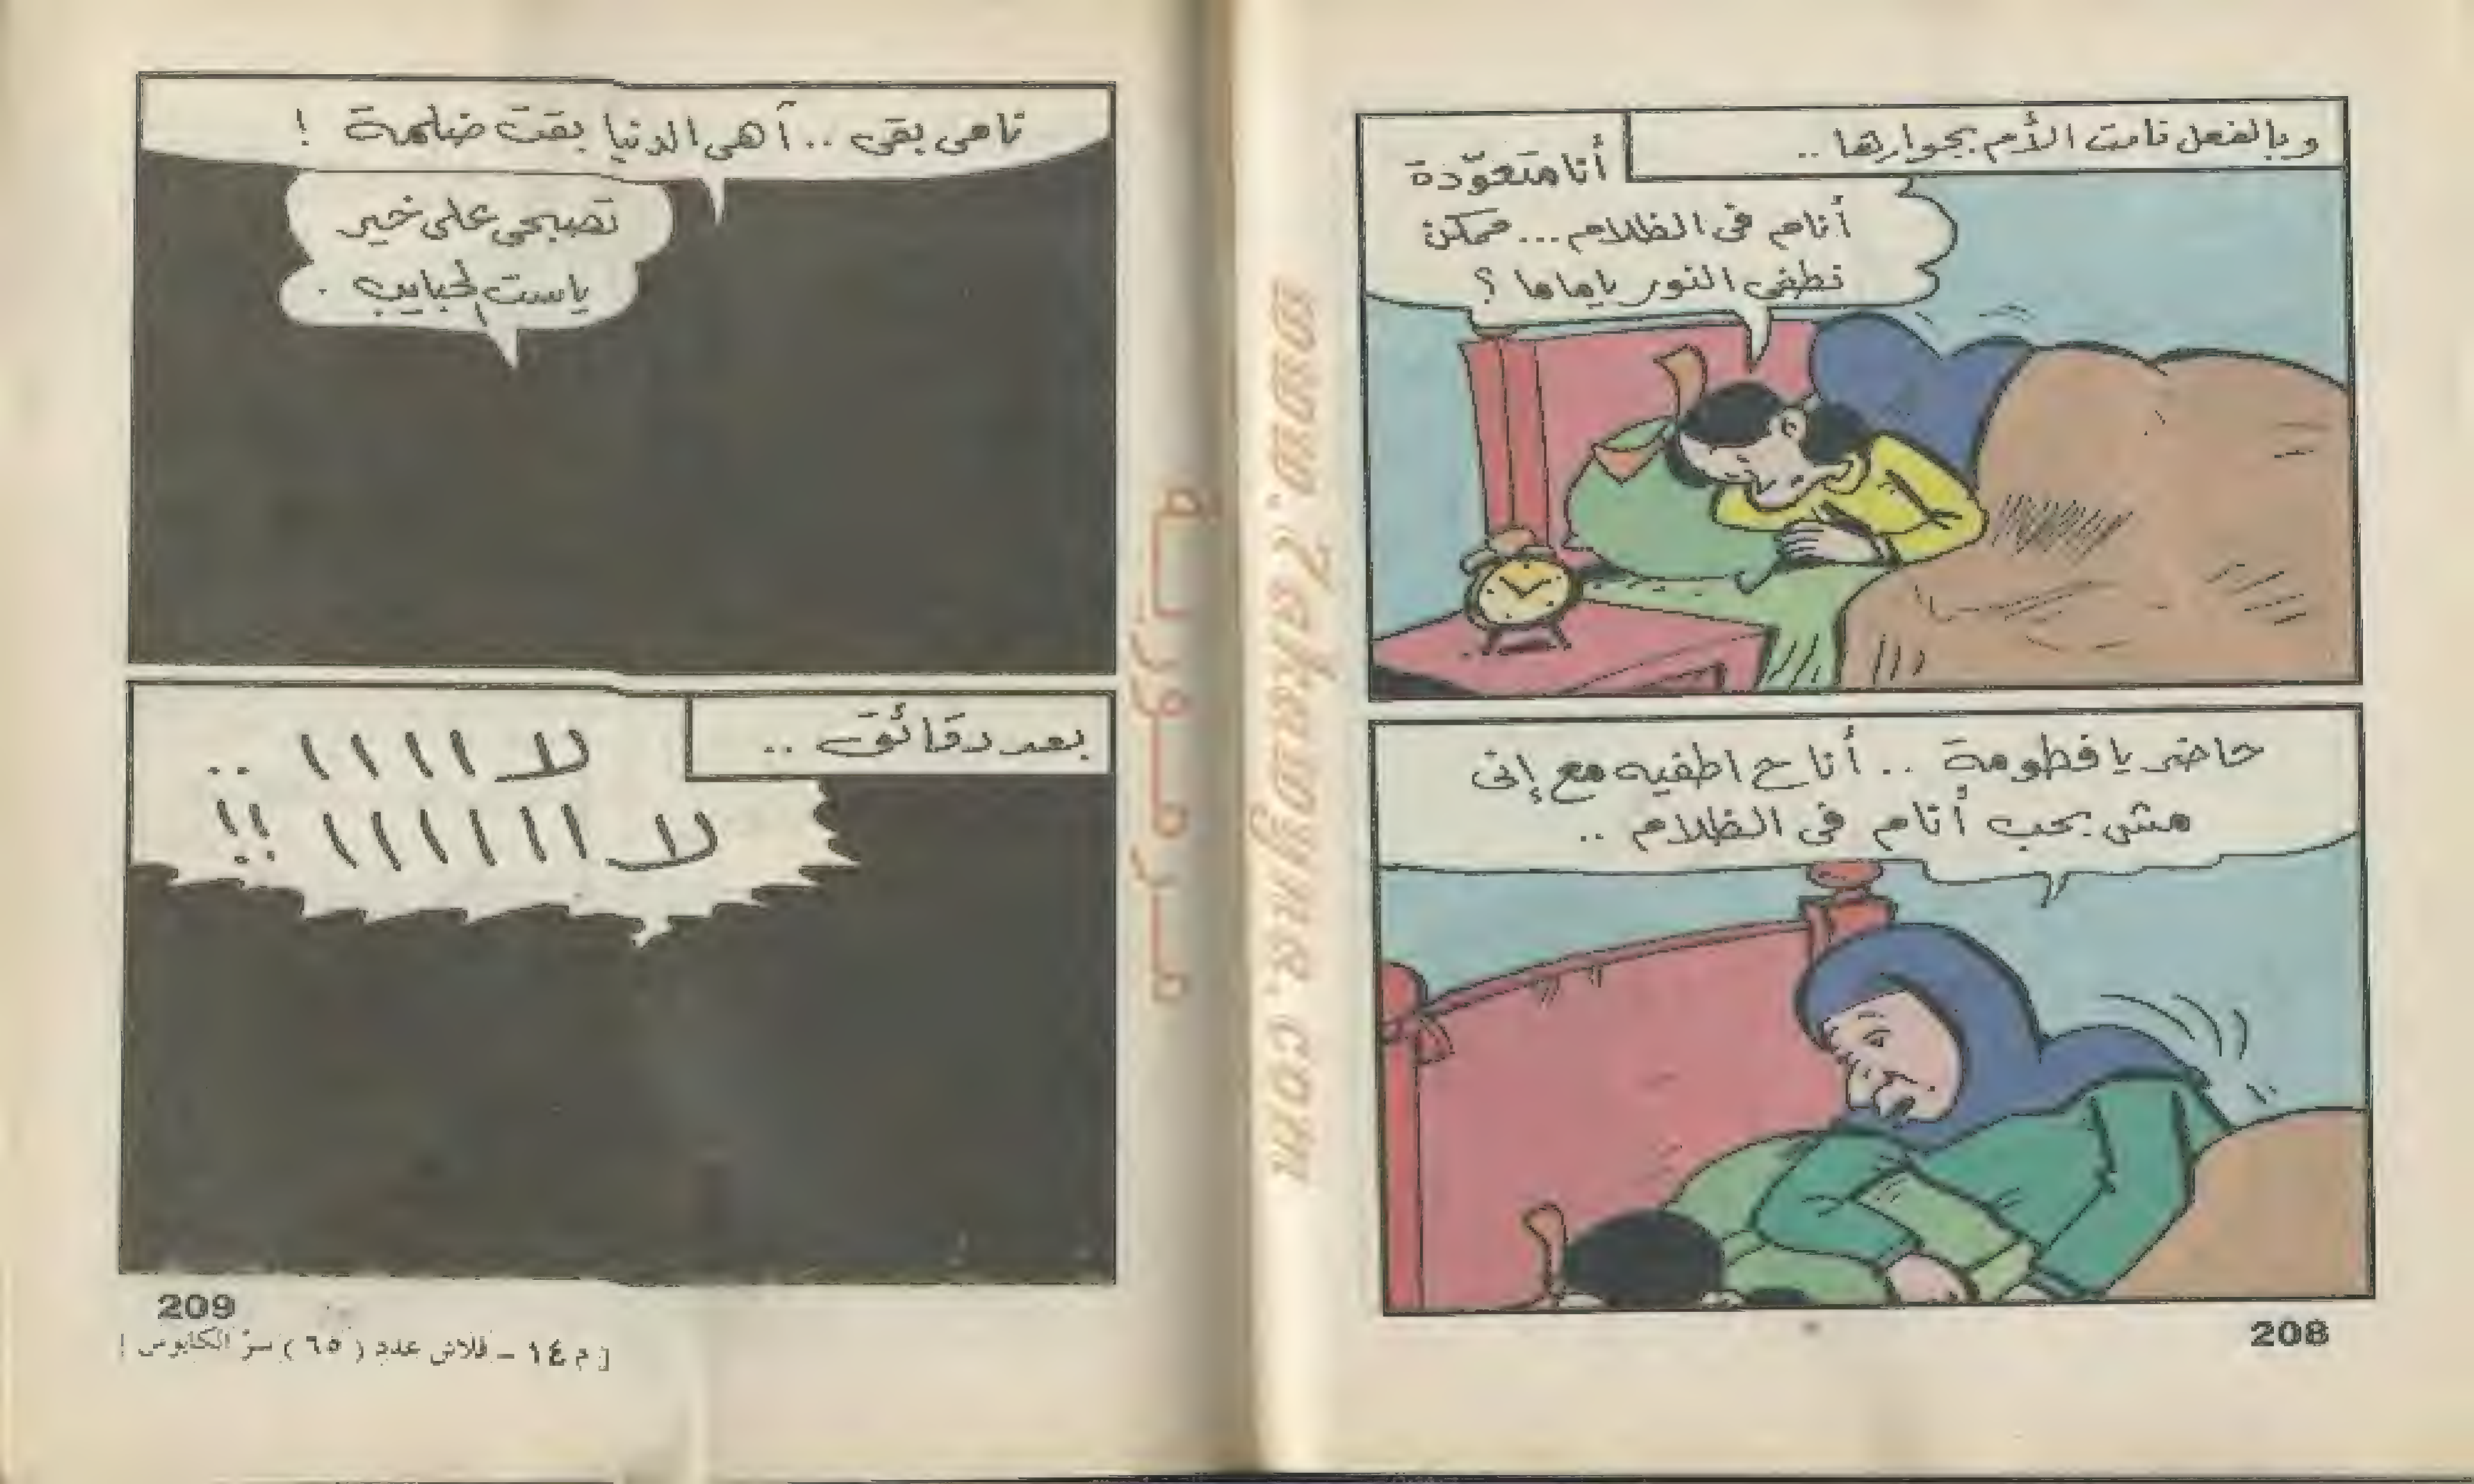 وبالفعل نامت الأم بجوارها ..
أنا متعوّدة
أنام فى الظلام ... ممكن
نطفى النور ياماما ؟
حاضر يا فطومة .. أنا ح اطفيه مع إنى
مش بحب أنام فى الظلام ..
208
نامى بقى .. آهى الدنيا بقت ضلمة !
تصبحى على خير
ياست الحبايب .
بعد دقائق ..
لا ا ا ا ا ..
لا ا ا ا ا ا ا !!
209
[ م ١٤ - فلاش عدد ( ٦٥ ) سرّ الكابوس ]
مرمورية
www.7akawyhra.com